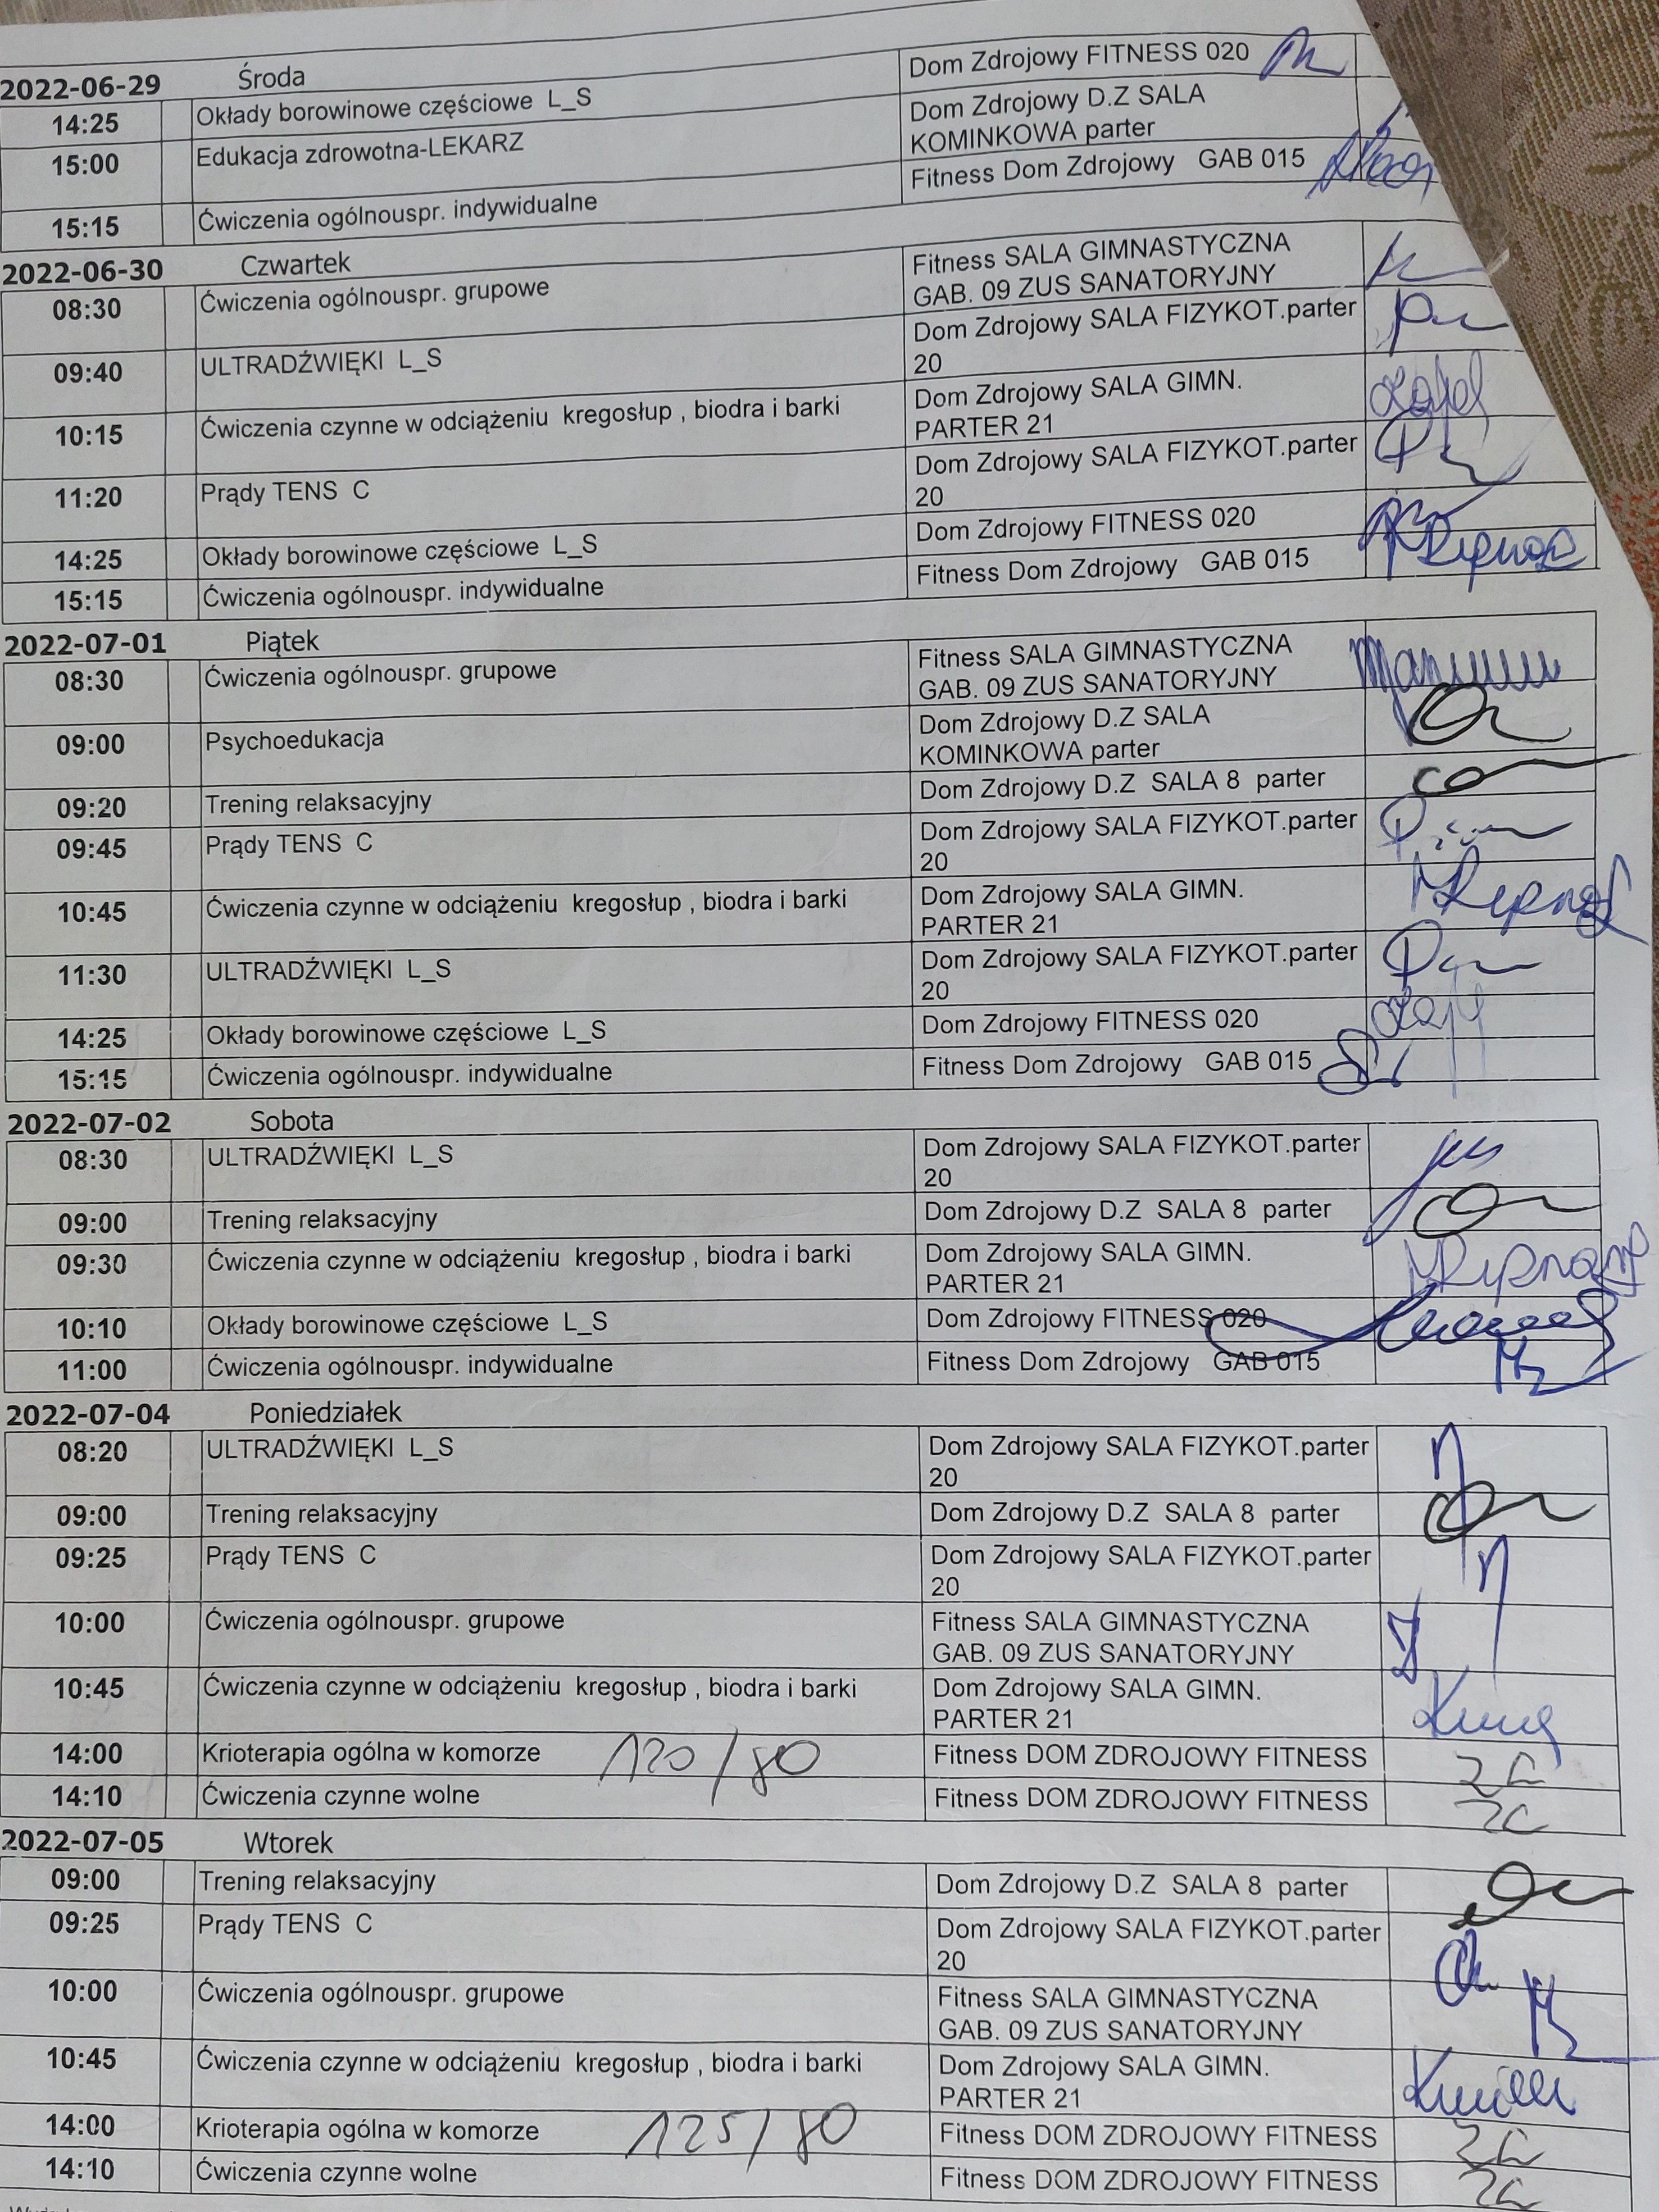 2022-06-29 Środa
14:25 Okłady borowinowe częściowe L_S Dom Zdrojowy FITNESS 020
15:00 Edukacja zdrowotna-LEKARZ Dom Zdrojowy D.Z SALA
KOMINKOWA parter
15:15 Ćwiczenia ogólnouspr. indywidualne Fitness Dom Zdrojowy GAB 015
2022-06-30 Czwartek
08:30 Ćwiczenia ogólnouspr. grupowe Fitness SALA GIMNASTYCZNA
GAB. 09 ZUS SANATORYJNY
09:40 ULTRADŹWIĘKI L_S Dom Zdrojowy SALA FIZYKOT.parter
20
10:15 Ćwiczenia czynne w odciążeniu kregosłup , biodra i barki Dom Zdrojowy SALA GIMN.
PARTER 21
11:20 Prądy TENS C Dom Zdrojowy SALA FIZYKOT.parter
20
14:25 Okłady borowinowe częściowe L_S Dom Zdrojowy FITNESS 020
15:15 Ćwiczenia ogólnouspr. indywidualne Fitness Dom Zdrojowy GAB 015
2022-07-01 Piątek
08:30 Ćwiczenia ogólnouspr. grupowe Fitness SALA GIMNASTYCZNA
GAB. 09 ZUS SANATORYJNY
09:00 Psychoedukacja Dom Zdrojowy D.Z SALA
KOMINKOWA parter
09:20 Trening relaksacyjny Dom Zdrojowy D.Z SALA 8 parter
09:45 Prądy TENS C Dom Zdrojowy SALA FIZYKOT.parter
20
10:45 Ćwiczenia czynne w odciążeniu kregosłup , biodra i barki Dom Zdrojowy SALA GIMN.
PARTER 21
11:30 ULTRADŹWIĘKI L_S Dom Zdrojowy SALA FIZYKOT.parter
20
14:25 Okłady borowinowe częściowe L_S Dom Zdrojowy FITNESS 020
15:15 Ćwiczenia ogólnouspr. indywidualne Fitness Dom Zdrojowy GAB 015
2022-07-02 Sobota
08:30 ULTRADŹWIĘKI L_S Dom Zdrojowy SALA FIZYKOT.parter
20
09:00 Trening relaksacyjny Dom Zdrojowy D.Z SALA 8 parter
09:30 Ćwiczenia czynne w odciążeniu kregosłup , biodra i barki Dom Zdrojowy SALA GIMN.
PARTER 21
10:10 Okłady borowinowe częściowe L_S Dom Zdrojowy FITNESS 020
11:00 Ćwiczenia ogólnouspr. indywidualne Fitness Dom Zdrojowy GAB 015
2022-07-04 Poniedziałek
08:20 ULTRADŹWIĘKI L_S Dom Zdrojowy SALA FIZYKOT.parter
20
09:00 Trening relaksacyjny Dom Zdrojowy D.Z SALA 8 parter
09:25 Prądy TENS C Dom Zdrojowy SALA FIZYKOT.parter
20
10:00 Ćwiczenia ogólnouspr. grupowe Fitness SALA GIMNASTYCZNA
GAB. 09 ZUS SANATORYJNY
10:45 Ćwiczenia czynne w odciążeniu kregosłup , biodra i barki Dom Zdrojowy SALA GIMN.
PARTER 21
14:00 Krioterapia ogólna w komorze 120/80 Fitness DOM ZDROJOWY FITNESS
14:10 Ćwiczenia czynne wolne Fitness DOM ZDROJOWY FITNESS
2022-07-05 Wtorek
09:00 Trening relaksacyjny Dom Zdrojowy D.Z SALA 8 parter
09:25 Prądy TENS C Dom Zdrojowy SALA FIZYKOT.parter
20
10:00 Ćwiczenia ogólnouspr. grupowe Fitness SALA GIMNASTYCZNA
GAB. 09 ZUS SANATORYJNY
10:45 Ćwiczenia czynne w odciążeniu kregosłup , biodra i barki Dom Zdrojowy SALA GIMN.
PARTER 21
14:00 Krioterapia ogólna w komorze 125/80 Fitness DOM ZDROJOWY FITNESS
14:10 Ćwiczenia czynne wolne Fitness DOM ZDROJOWY FITNESS